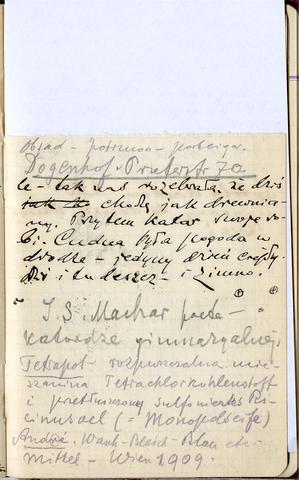 Obiad - potrmon - porbeiga.
Dogenhof - Praterstr 70
le - tak nas rozebrała, że dziś
tak że chodzę jak drewnia-
ny. Przytem katar swoje ro-
bi. Cudna była pogoda w
drodze - jedyny dzień
dziś i tu deszcz - i zimno.
J. S. Machar poeta -
katordze gimnazyalnej.
Tetrapol - rozpuszczalna mie-
szanina Tetrachlorkohlenstoff
i przetłuszczony sulfoniertes Ri-
cinusoel (= Monopolseife)
Andrée. Wasch-Bleich-Blau etc.
mittel - Wien 1909.